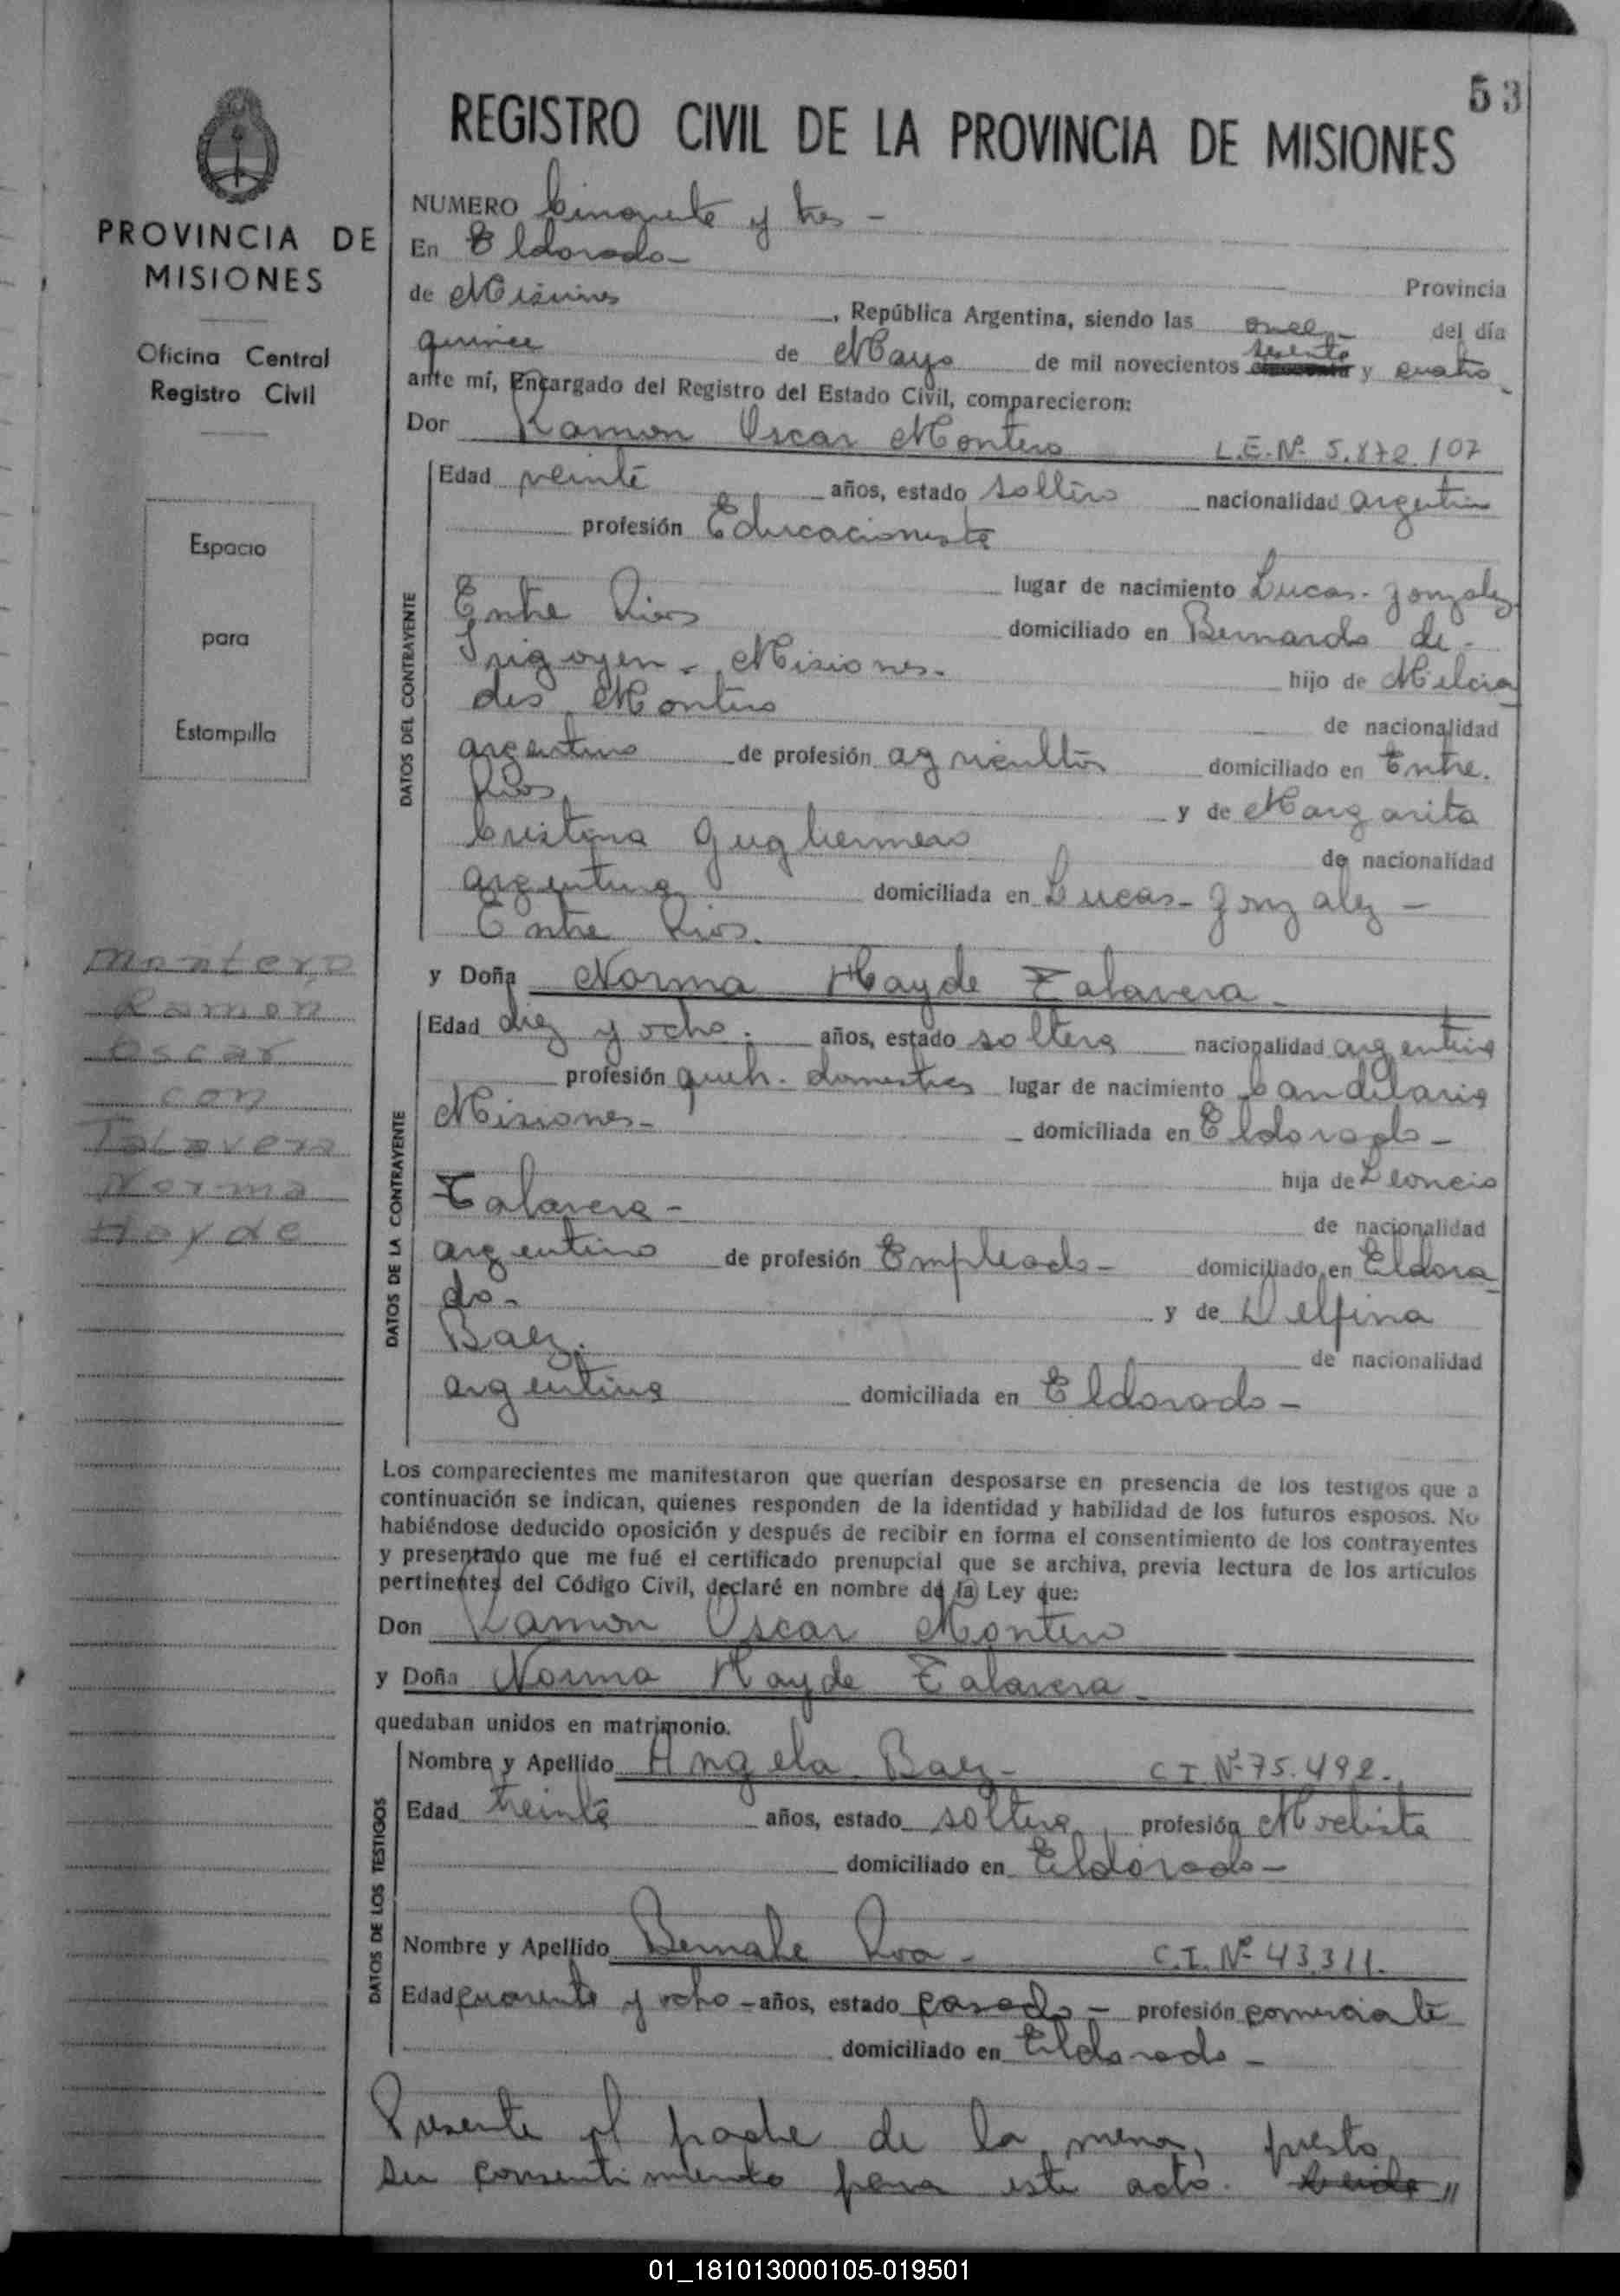 53
REGISTRO CIVIL DE LA PROVINCIA DE MISIONES
PROVINCIA DE
MISIONES
Oficina Central
Registro Civil
Espacio
para
Estampilla
Montero
Ramon
Oscar
con
Talavera
Norma
Hayde
NUMERO Cincuenta y tres -
En Eldorado -
Provincia
de Misiones, República Argentina, siendo las once - del día
quince de Mayo de mil novecientos sesenta y cuatro
ante mí, Encargado del Registro del Estado Civil, comparecieron:
Don Ramon Oscar Montero L.E. Nº 5.872.107
DATOS DEL CONTRAYENTE
Edad veinte años, estado soltero nacionalidad argentino
profesión Educacionista
lugar de nacimiento Lucas - Gonzalez
Entre Rios domiciliado en Bernardo de -
Irigoyen - Misiones - hijo de Melcia
des Montero de nacionalidad
argentino de profesión agricultor domiciliado en Entre.
Rios, y de Margarita
Cristina Gugliermero de nacionalidad
argentina domiciliada en Lucas - Gonzalez -
Entre Rios.
y Doña Norma Hayde Talavera -
DATOS DE LA CONTRAYENTE
Edad diez y ocho. años, estado soltera nacionalidad argentina
profesión queh. domesticos lugar de nacimiento Candelaria
Misiones - domiciliada en Eldorado -
hija de Leoncio
Talavera - de nacionalidad
argentino de profesión Empleado - domiciliado en Eldora
do - y de Delfina
Baez. de nacionalidad
argentina domiciliada en Eldorado -
Los comparecientes me manifestaron que querían desposarse en presencia de los testigos que a
continuación se indican, quienes responden de la identidad y habilidad de los futuros esposos. No
habiéndose deducido oposición y después de recibir en forma el consentimiento de los contrayentes
y presentado que me fué el certificado prenupcial que se archiva, previa lectura de los artículos
pertinentes del Código Civil, declaré en nombre de la Ley que:
Don Ramon Oscar Montero
y Doña Norma Hayde Talavera -
quedaban unidos en matrimonio.
DATOS DE LOS TESTIGOS
Nombre y Apellido Angela Baez - C I Nº 75.492.
Edad treinta años, estado soltera, profesión Modista
domiciliado en Eldorado -
Nombre y Apellido Bernabe Roa - C.I. Nº 43.311.
Edad cuarenta y ocho - años, estado casado - profesión comerciante
domiciliado en Eldorado -
Presente el padre de la menor, presta
su consentimiento para este acto. "
01_181013000105-019501